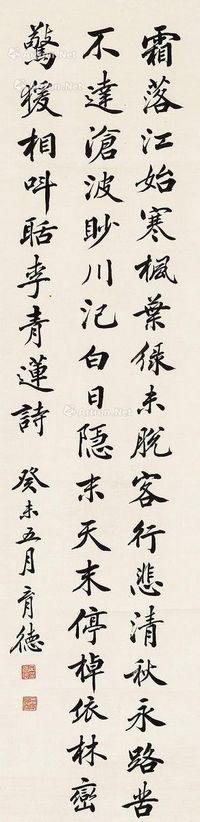 霜落江始寒楓葉綠未脫客行悲清秋永路苦
不達滄波眇川汜白日隱末天末停棹依林巒
驚猿相叫聒李青蓮詩
癸未五月育德